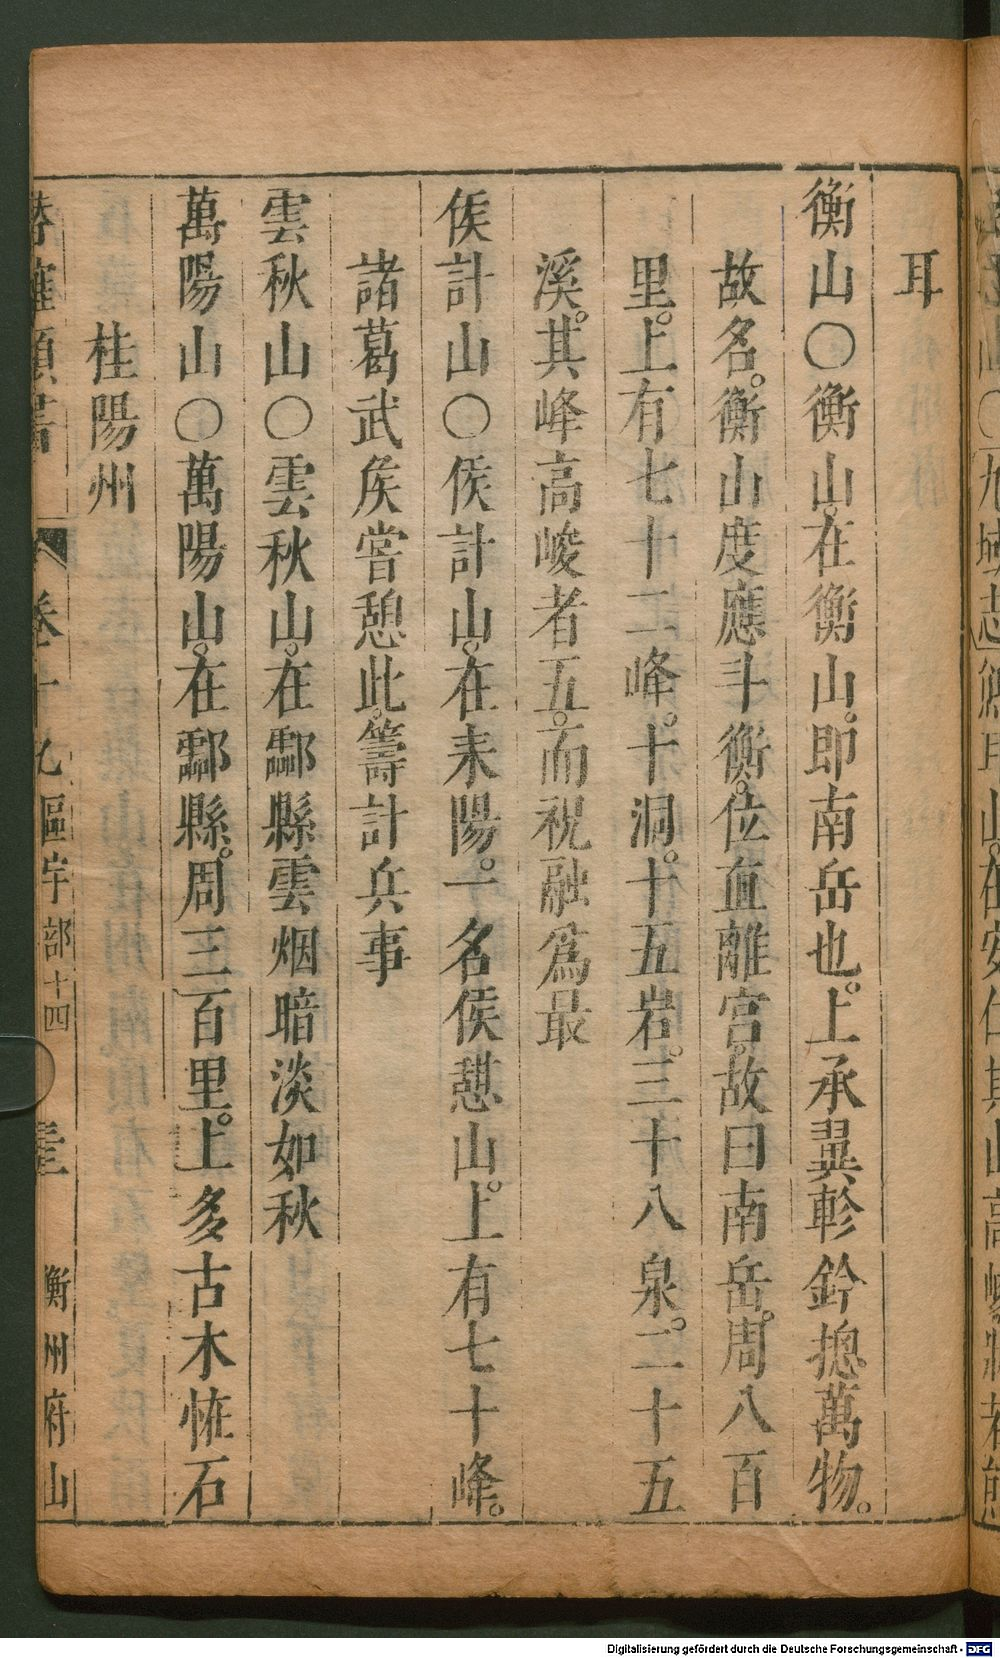 耳
衡山○衡山。在衡山。即南岳也。上承翼軫鈐揔萬物。
故名。衡山度應斗衡。位直離宮。故曰南岳。周八百
里。上有七十二峰。十洞。十五岩。三十八泉。二十五
溪。其峰高峻者五。而祝融爲最
侯計山○侯計山。在耒陽。一名侯憇山。上有七十峰。
諸葛武侯嘗憩此。籌計兵事
雲秋山○雲秋山。在酃縣雲烟暗淡如秋
萬陽山○萬陽山。在酃縣。周三百里。上多古木恠石
桂陽州
卷十九區宇部十四 衡州府山
○九域志 山。在安仁其山高
Digitalisierung gefördert durch die Deutsche Forschungsgemeinschaft - DFG